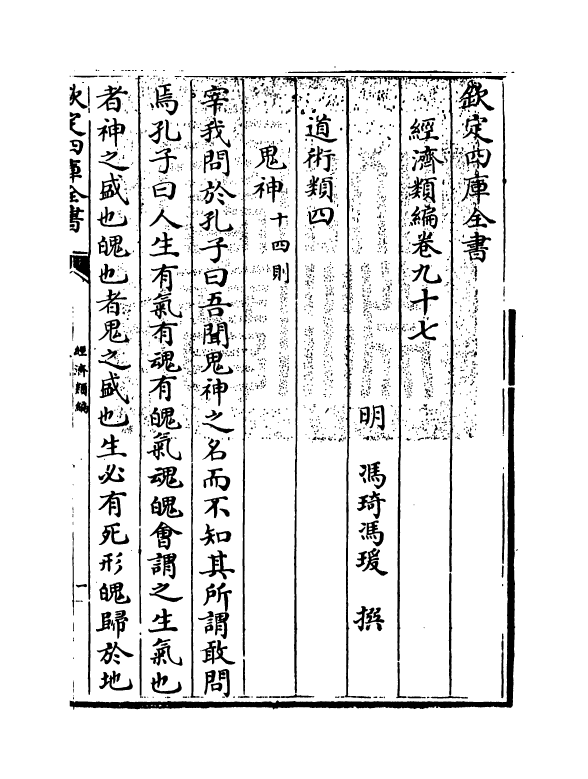 欽定四庫全書
經濟類編卷九十七
明 馮琦馮瑗 撰
道術類四
鬼神十四則
宰我問於孔子曰吾聞鬼神之名而不知其所謂敢問
焉孔子曰人生有氣有魂有魄氣魂魄會謂之生氣也
者神之盛也魄也者鬼之盛也生必有死形魄歸於地
欽定四庫全書
經濟類編
一